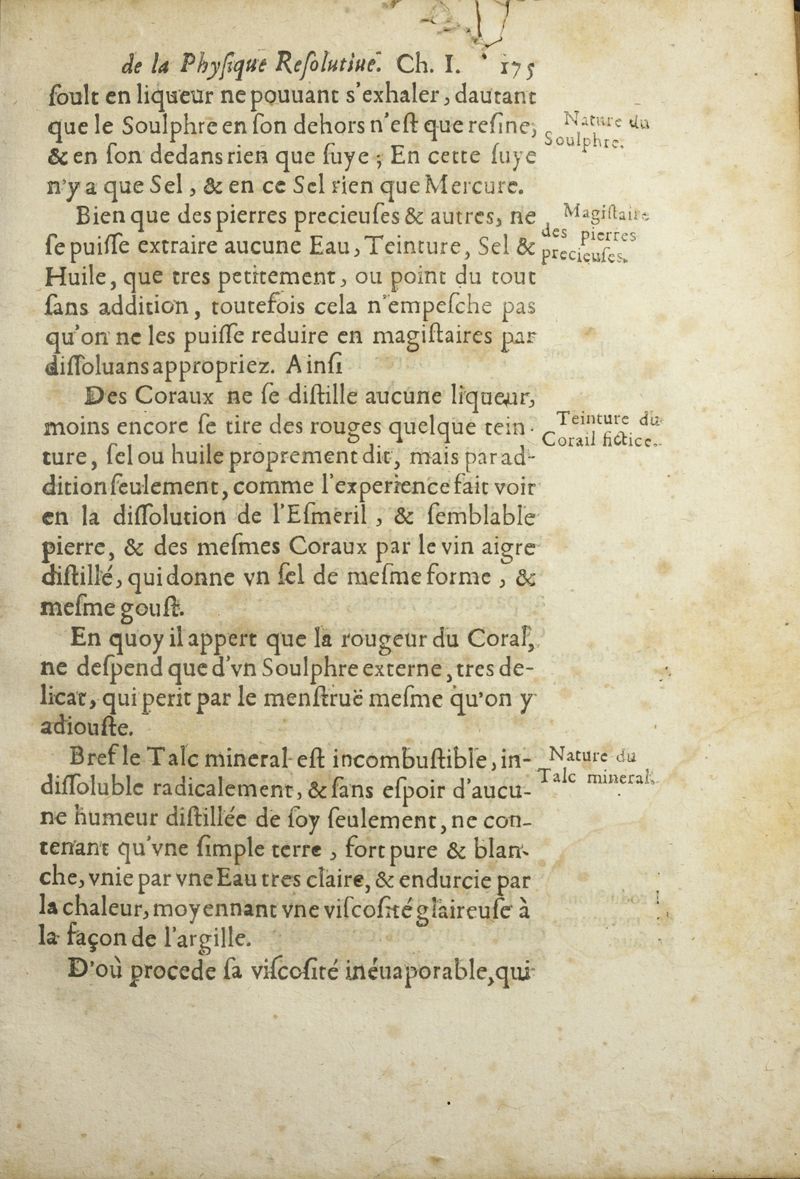 de la Phyſique Reſolutiue. Ch. I. 175
ſoult en liqueur ne pouuant s'exhaler, dautant
que le Soulphre en ſon dehors n'eſt que reſine,
& en ſon dedans rien que ſuye ; En cette ſuye
n'y a que Sel, & en ce Sel rien que Mercure.
Nature du
Soulphre.
Bien que des pierres precieuſes & autres, ne
ſe puiſſe extraire aucune Eau, Teinture, Sel &
Huile, que tres petitement, ou point du tout
ſans addition, toutefois cela n'empeſche pas
qu'on ne les puiſſe reduire en magiſtaires par
diſſoluans appropriez. Ainſi
Magiſtaire
des pierres
precieuſes.
Des Coraux ne ſe diſtille aucune liqueur,
moins encore ſe tire des rouges quelque tein-
ture, ſel ou huile proprement dit, mais par ad-
dition ſeulement, comme l'experience fait voir
en la diſſolution de l'Eſmeril, & ſemblable
pierre, & des meſmes Coraux par le vin aigre
diſtillé, qui donne vn ſel de meſme forme, &
meſme gouſt.
Teinture du
Corail fictice.
En quoy il appert que la rougeur du Coral,
ne deſpend que d'vn Soulphre externe, tres de-
licat, qui perit par le menſtruë meſme qu'on y
adiouſte.
Bref le Talc mineral eſt incombuſtible, in-
diſſoluble radicalement, & ſans eſpoir d'aucu-
ne humeur diſtillée de ſoy ſeulement, ne con-
tenant qu'vne ſimple terre, fort pure & blan-
che, vnie par vne Eau tres claire, & endurcie par
la chaleur, moyennant vne viſcoſité glaireuſe à
la façon de l'argille.
Nature du
Talc mineral.
D'où procede ſa viſcoſité inéuaporable, qui